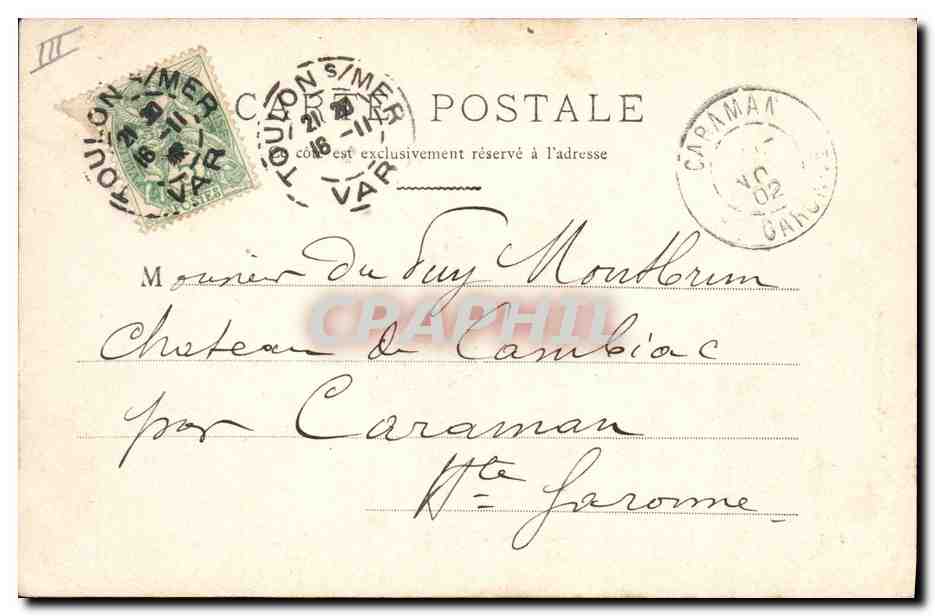 III
TOULON S/MER
21 20
-11
16
VAR
POSTES
TOULON S/MER
21
-11
16
VAR
CARTE POSTALE
Ce côté est exclusivement réservé à l'adresse
CARAMAN
02
GARONNE
Monsieur Du Puy Montbrun
CPAPHIL
Chateau de Cambiac
par Caraman
Hte Garonne